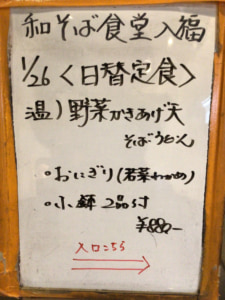 和そば食堂入福
1/26〈日替定食〉
温)野菜かきあげ天
そばうどん
。おにぎり(若菜わかめ)
。小鉢2品付
¥880-
入口こちら